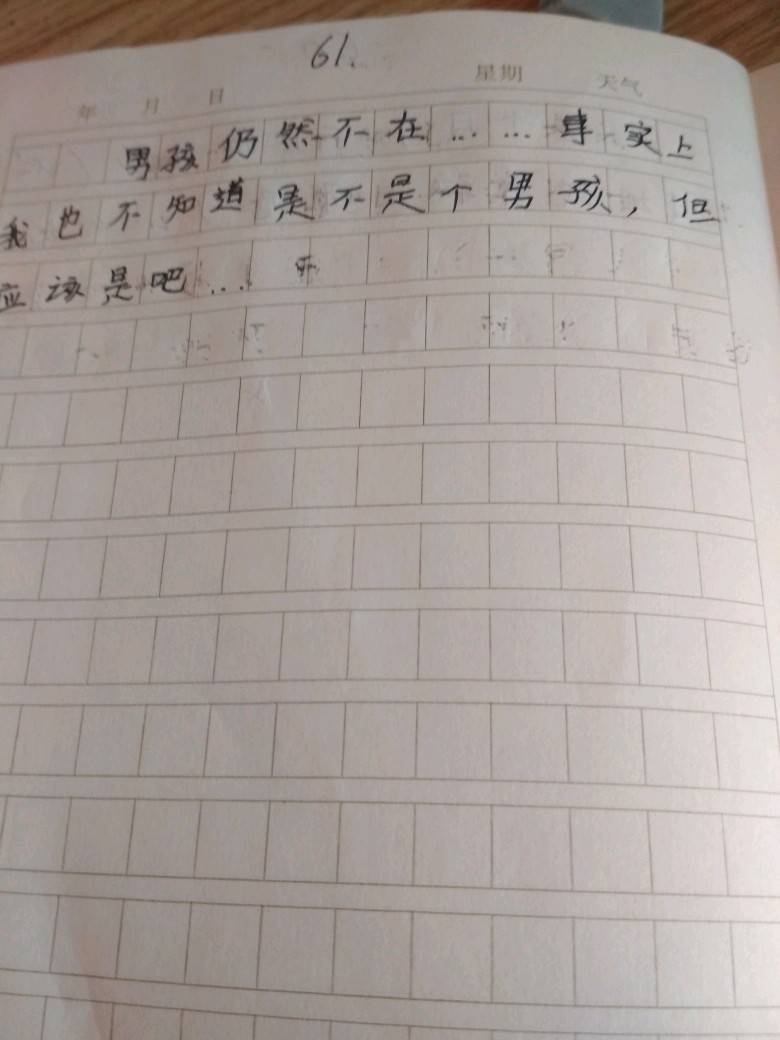 61.
年 月 日 星期 天气
男孩仍然不在……事实上
我也不知道是不是个男孩，但
应该是吧…